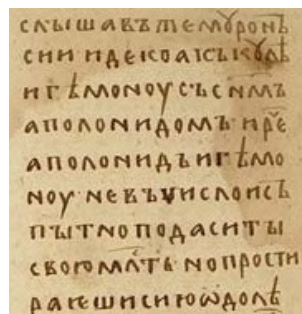 слꙑшавъ же мѵронъ
сии идекоаксꙑколѣ
игѣмоноу съсимъ
аполонидомъ· и рⷱ҇е
аполонидъ игѣмо
ноу· не въчислоисъ
пꙑтно подаси тꙑ
свою млⷭ҇ть· но прости
раѥши сию ѿдолѣ